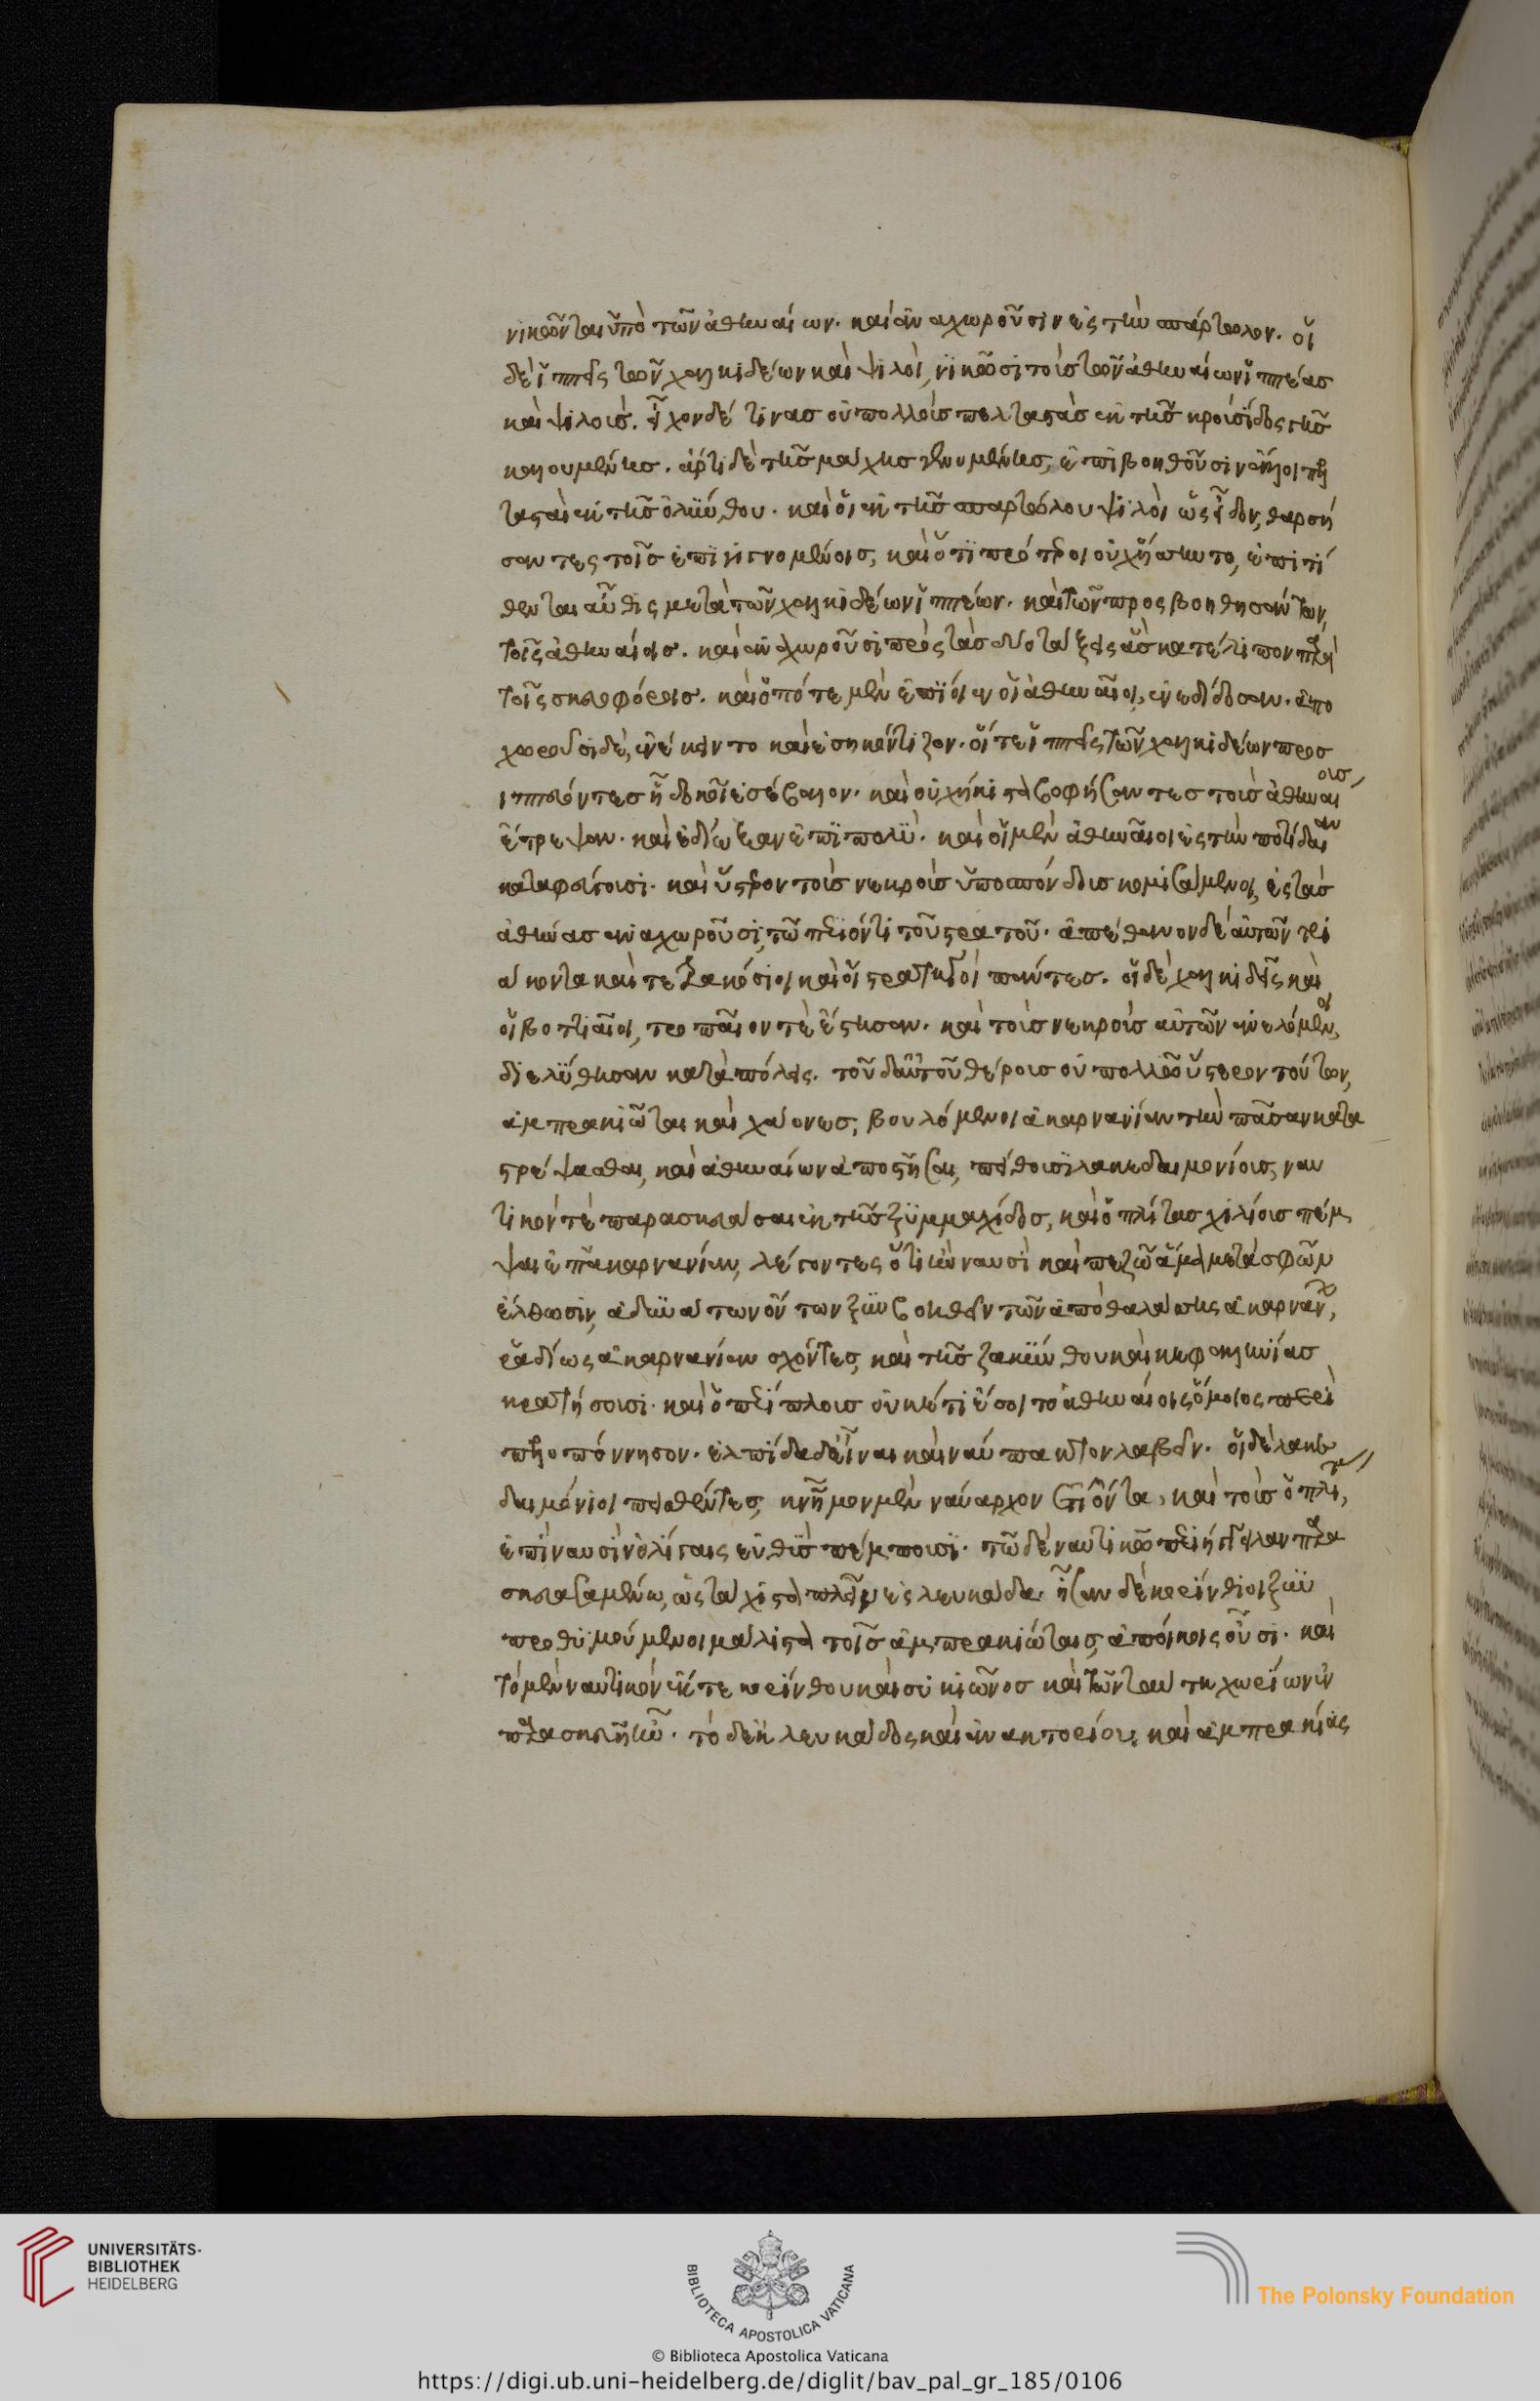 νικῶνται ὑπὸ τῶν ἀθηναίων. καὶ ἀναχωροῦσιν ἐς τὴν σπάρτωλον. οἱ
δὲ ἱππεῖς τῶν χαλκιδέων καὶ ψιλοὶ, νικῶσι τοὺς τῶν ἀθηναίων ἱππέας
καὶ ψιλούς. εἶχον δέ τινας οὐ πολλοὺς πελταστὰς ἐκ τῆς κρουσίδος γῆς
καλουμένης. ἄρτι δὲ τῆς μάχης γενομένης, ἐπιβοηθοῦσιν ἄλλοι πελ
τασταὶ ἐκ τῆς ὀλύνθου. καὶ οἱ ἐκ τῆς σπαρτώλου ψιλοὶ ὡς εἶδον, θαρσή
σαντες τοῖς ἐπιγιγνομένοις, καὶ ὅτι πρότεροι οὐχ ἥσσηντο, ἐπιτί
θενται αὖθις μετὰ τῶν χαλκιδέων ἱππέων. καὶ τῶν προσβοηθησάντων,
τοῖς ἀθηναίοις. καὶ ἀναχωροῦσι πρὸς τὰς δύο τάξεις ἃς κατέλιπον παρὰ
τοῖς σκευοφόροις. καὶ ὁπότε μὲν ἐπίοιεν οἱ ἀθηναῖοι, ἐνεδίδοσαν. ἀπο
χωροῦσι δὲ, ἐνέκειντο καὶ ἐσηκόντιζον. οἵ τε ἱππεῖς τῶν χαλκιδέων προσ
ιππεύοντες ᾗ δοκοῖ ἐσέβαλον. καὶ οὐχ ἥκιστα φοβήσαντες τοὺς ἀθηναίους
ἔτρεψαν. καὶ ἐδίωξαν ἐπὶ πολύ. καὶ οἱ μὲν ἀθηναῖοι ἐς τὴν ποτίδαιαν
καταφεύγουσι. καὶ ὕστερον τοὺς νεκροὺς ὑποσπόνδους κομισάμενοι, ἐς τὰς
ἀθήνας ἀναχωροῦσι, τῷ περιόντι τοῦ στρατοῦ. ἀπέθανον δὲ αὐτῶν τρι
άκοντα καὶ τετρακόσιοι καὶ οἱ στρατηγοὶ πάντες. οἱ δὲ χαλκιδεῖς καὶ
οἱ βοττιαῖοι, τροπαῖον τὲ ἔστησαν. καὶ τοὺς νεκροὺς αὐτῶν ἀνελόμενοι,
διελύθησαν κατὰ πόλεις. τοῦ δ αὐτοῦ θέρους οὐ πολλῷ ὕστερον τούτων,
ἀμπρακιῶται καὶ χάονες, βουλόμενοι ἀκαρνανίαν τὴν πᾶσαν κατα
στρέψασθαι, καὶ ἀθηναίων ἀποστῆσαι, πείθουσι λακεδαιμονίους ναυ
τικόν τὲ παρασκευάσαι ἐκ τῆς ξυμμαχίδος, καὶ ὁπλίτας χιλίους πέμ
ψαι ἐπ ἀκαρνανίαν, λέγοντες ὅτι ἢν ναυσὶ καὶ πεζῷ ἅμα μετὰ σφῶν
ἔλθωσιν, ἀδυνάτων ὄντων ξυμβοηθεῖν τῶν ἀπὸ θαλάσσης ἀκαρνάνων,
ῥᾳδίως ἀκαρνανίαν σχόντες, καὶ τῆς ζακύνθου καὶ κεφαλληνίας
κρατήσουσι. καὶ ὁ περίπλους οὐκέτι ἔσοιτο ἀθηναίοις ὁμοίως περὶ
πελοπόννησον. ἐλπίδα δ εἶναι καὶ ναύπακτον λαβεῖν. οἱ δὲ λακε
δαιμόνιοι πεισθέντες, κνῆμον μὲν ναύαρχον ἔτι ὄντα, καὶ τοὺς ὁπλίτας,
ἐπὶ ναυσὶν ὀλίγαις εὐθὺς πέμπουσι. τῷ δὲ ναυτικῷ περιήγγειλαν παρα
σκευασαμένῳ, ὡς τάχιστα πλεῖν ἐς λευκάδα. ἦσαν δὲ κορίνθιοι ξυμ
προθυμούμενοι μάλιστα τοῖς ἀμπρακιώταις, ἀποίκοις οὖσι. καὶ
τὸ μὲν ναυτικὸν ἔκ τε κορίνθου καὶ σικυῶνος καὶ τῶν ταύτῃ χωρίων ἐν
παρασκευῇ ἦν. τὸ δ ἐκ λευκάδος καὶ ἀνακτορίου, καὶ ἀμπρακίας
UNIVERSITÄTS-
BIBLIOTHEK
HEIDELBERG
BIBLIOTECA APOSTOLICA VATICANA
The Polonsky Foundation
© Biblioteca Apostolica Vaticana
https://digi.ub.uni-heidelberg.de/diglit/bav_pal_gr_185/0106